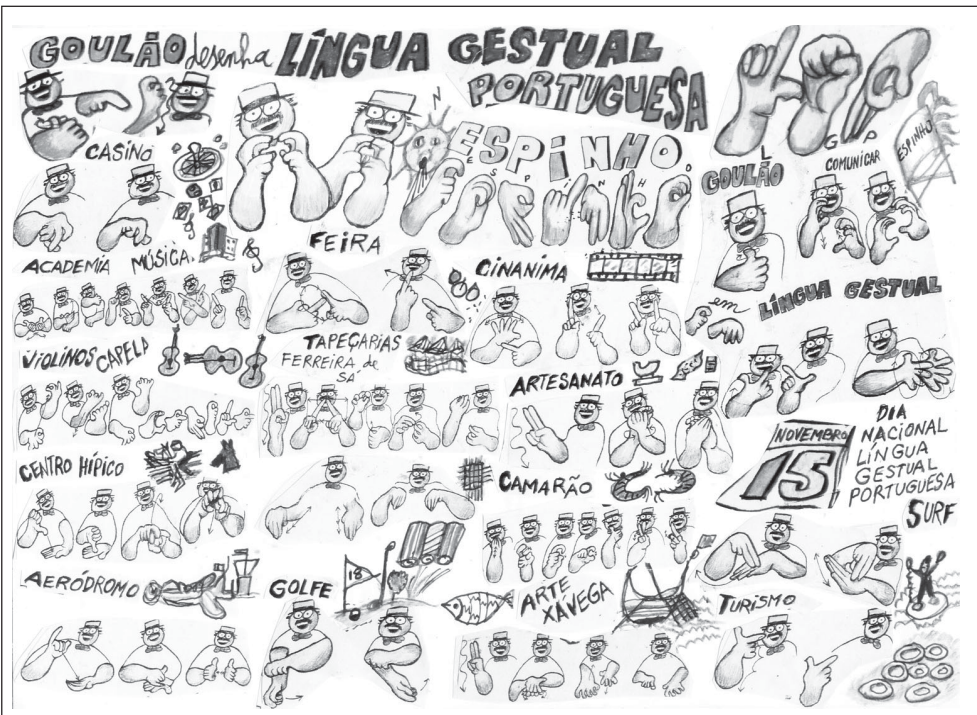 GOULÃO desenha LÍNGUA GESTUAL
PORTUGUESA
L
G
P
CASINO
N
ESPINHO
E
S
P
I
N
H
O
GOULÃO
COMUNICAR
ESPINHO
ACADEMIA MÚSICA
FEIRA
CINANIMA
em
LÍNGUA GESTUAL
VIOLINOS CAPELA
TAPEÇARIAS
FERREIRA de
SÁ
ARTESANATO
NOVEMBRO
15
DIA
NACIONAL
LÍNGUA
GESTUAL
PORTUGUESA
CENTRO HÍPICO
CAMARÃO
SURF
AERÓDROMO
GOLFE
18
ARTE
XÁVEGA
TURISMO